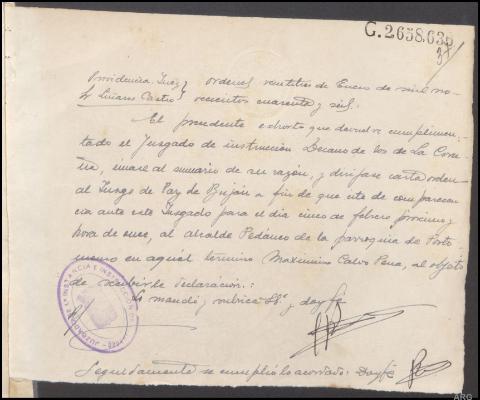 G.2658.635
37
Providencia Juez } Ordenes veintitres de Enero de mil no-
Sr Liñares Castro } vecientos cuarenta y seis.
El precedente exhorto que devuelve cumplimen-
tado el Juzgado de instrucción Decano de los de La Coru-
ña, únase al sumario de su razón, y diríjase carta orden
al Juzgo de Paz de Buján a fin de que cite de comparecen
cia ante este Juzgado para el día cinco de febrero próximo y
hora de once, al alcalde Pedáneo de la parroquia de Porto-
mouro en aquel término Maximino Calvo Pena, al objeto
de recibirle declaración.:
Lo mandó y rubrica Sª. y doy fe
JUZGADO DE 1ª INSTANCIA E INSTRUCCION
Seguidamente se cumplió lo acordado. Doy fe
ARG